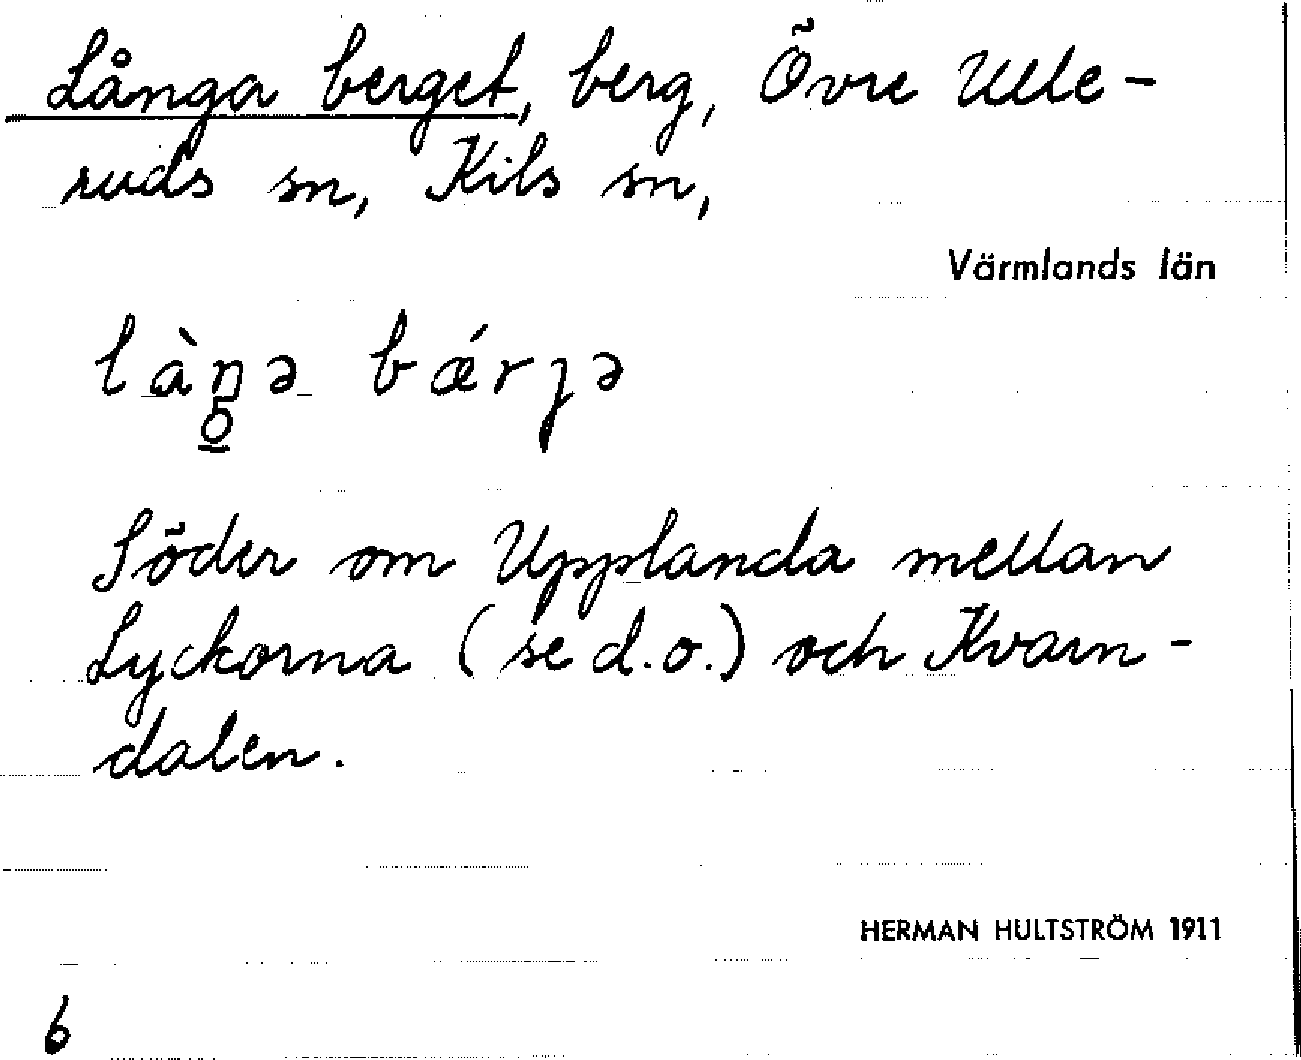 Långa berget, berg, Övre Ulle-
ruds sn, Kils sn,
Värmlands län
làŋə bǽrȷə
Söder om Upplanda mellan
Lyckorna (se d.o.) och Kvarn-
dalen.
HERMAN HULTSTRÖM 1911
6